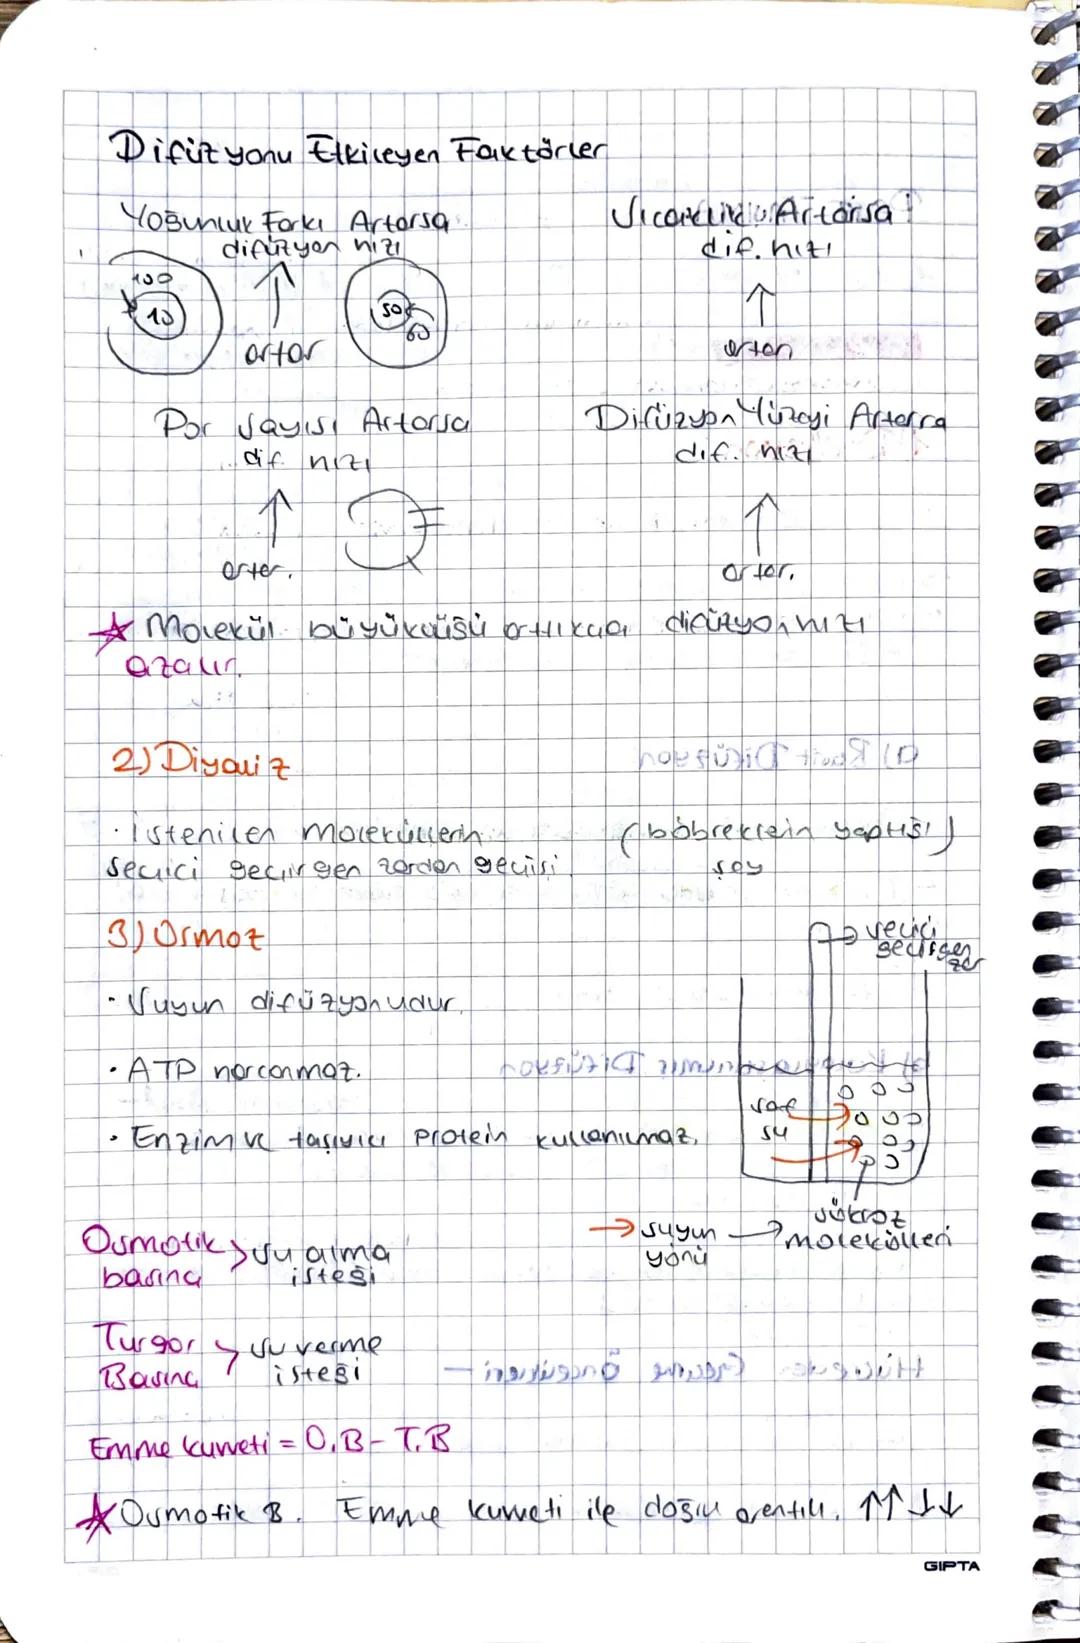 Difüzyonu Etkileyen Faktörler
Yoğunluk Farkı Artarsa
difüzyon hızı
artar
100
10
50
60
Sıcaklık Artarsa
dif. hızı
artar
Por Sayısı Artarsa
dif. hızı
artar.
Difüzyon Yüzeyi Artarsa
dif. hızı
artar.
☆ Molekül büyüklüğü arttıkça difüzyon hızı
azalır.
2) Diyaliz
· İstenilen moleküllerin
seçici geçirgen zardan geçişi.
(böbreklerin yaptığı)
şey
3) Osmoz
· Suyun difüzyonudur.
· ATP harcanmaz.
· Enzim ve taşıyıcı protein kullanılmaz.
→ seçici
geçirgen
zar
saf
su
→ suyun
yönü
→ sükroz
molekülleri
Osmotik > su alma
basıncı isteği
Turgor > su verme
Basıncı isteği
Emme kuvveti = O.B - T.B
☆ Osmotik B. Emme kuvveti ile doğru orantılı. ↑↑ ↓↓
GIPTA